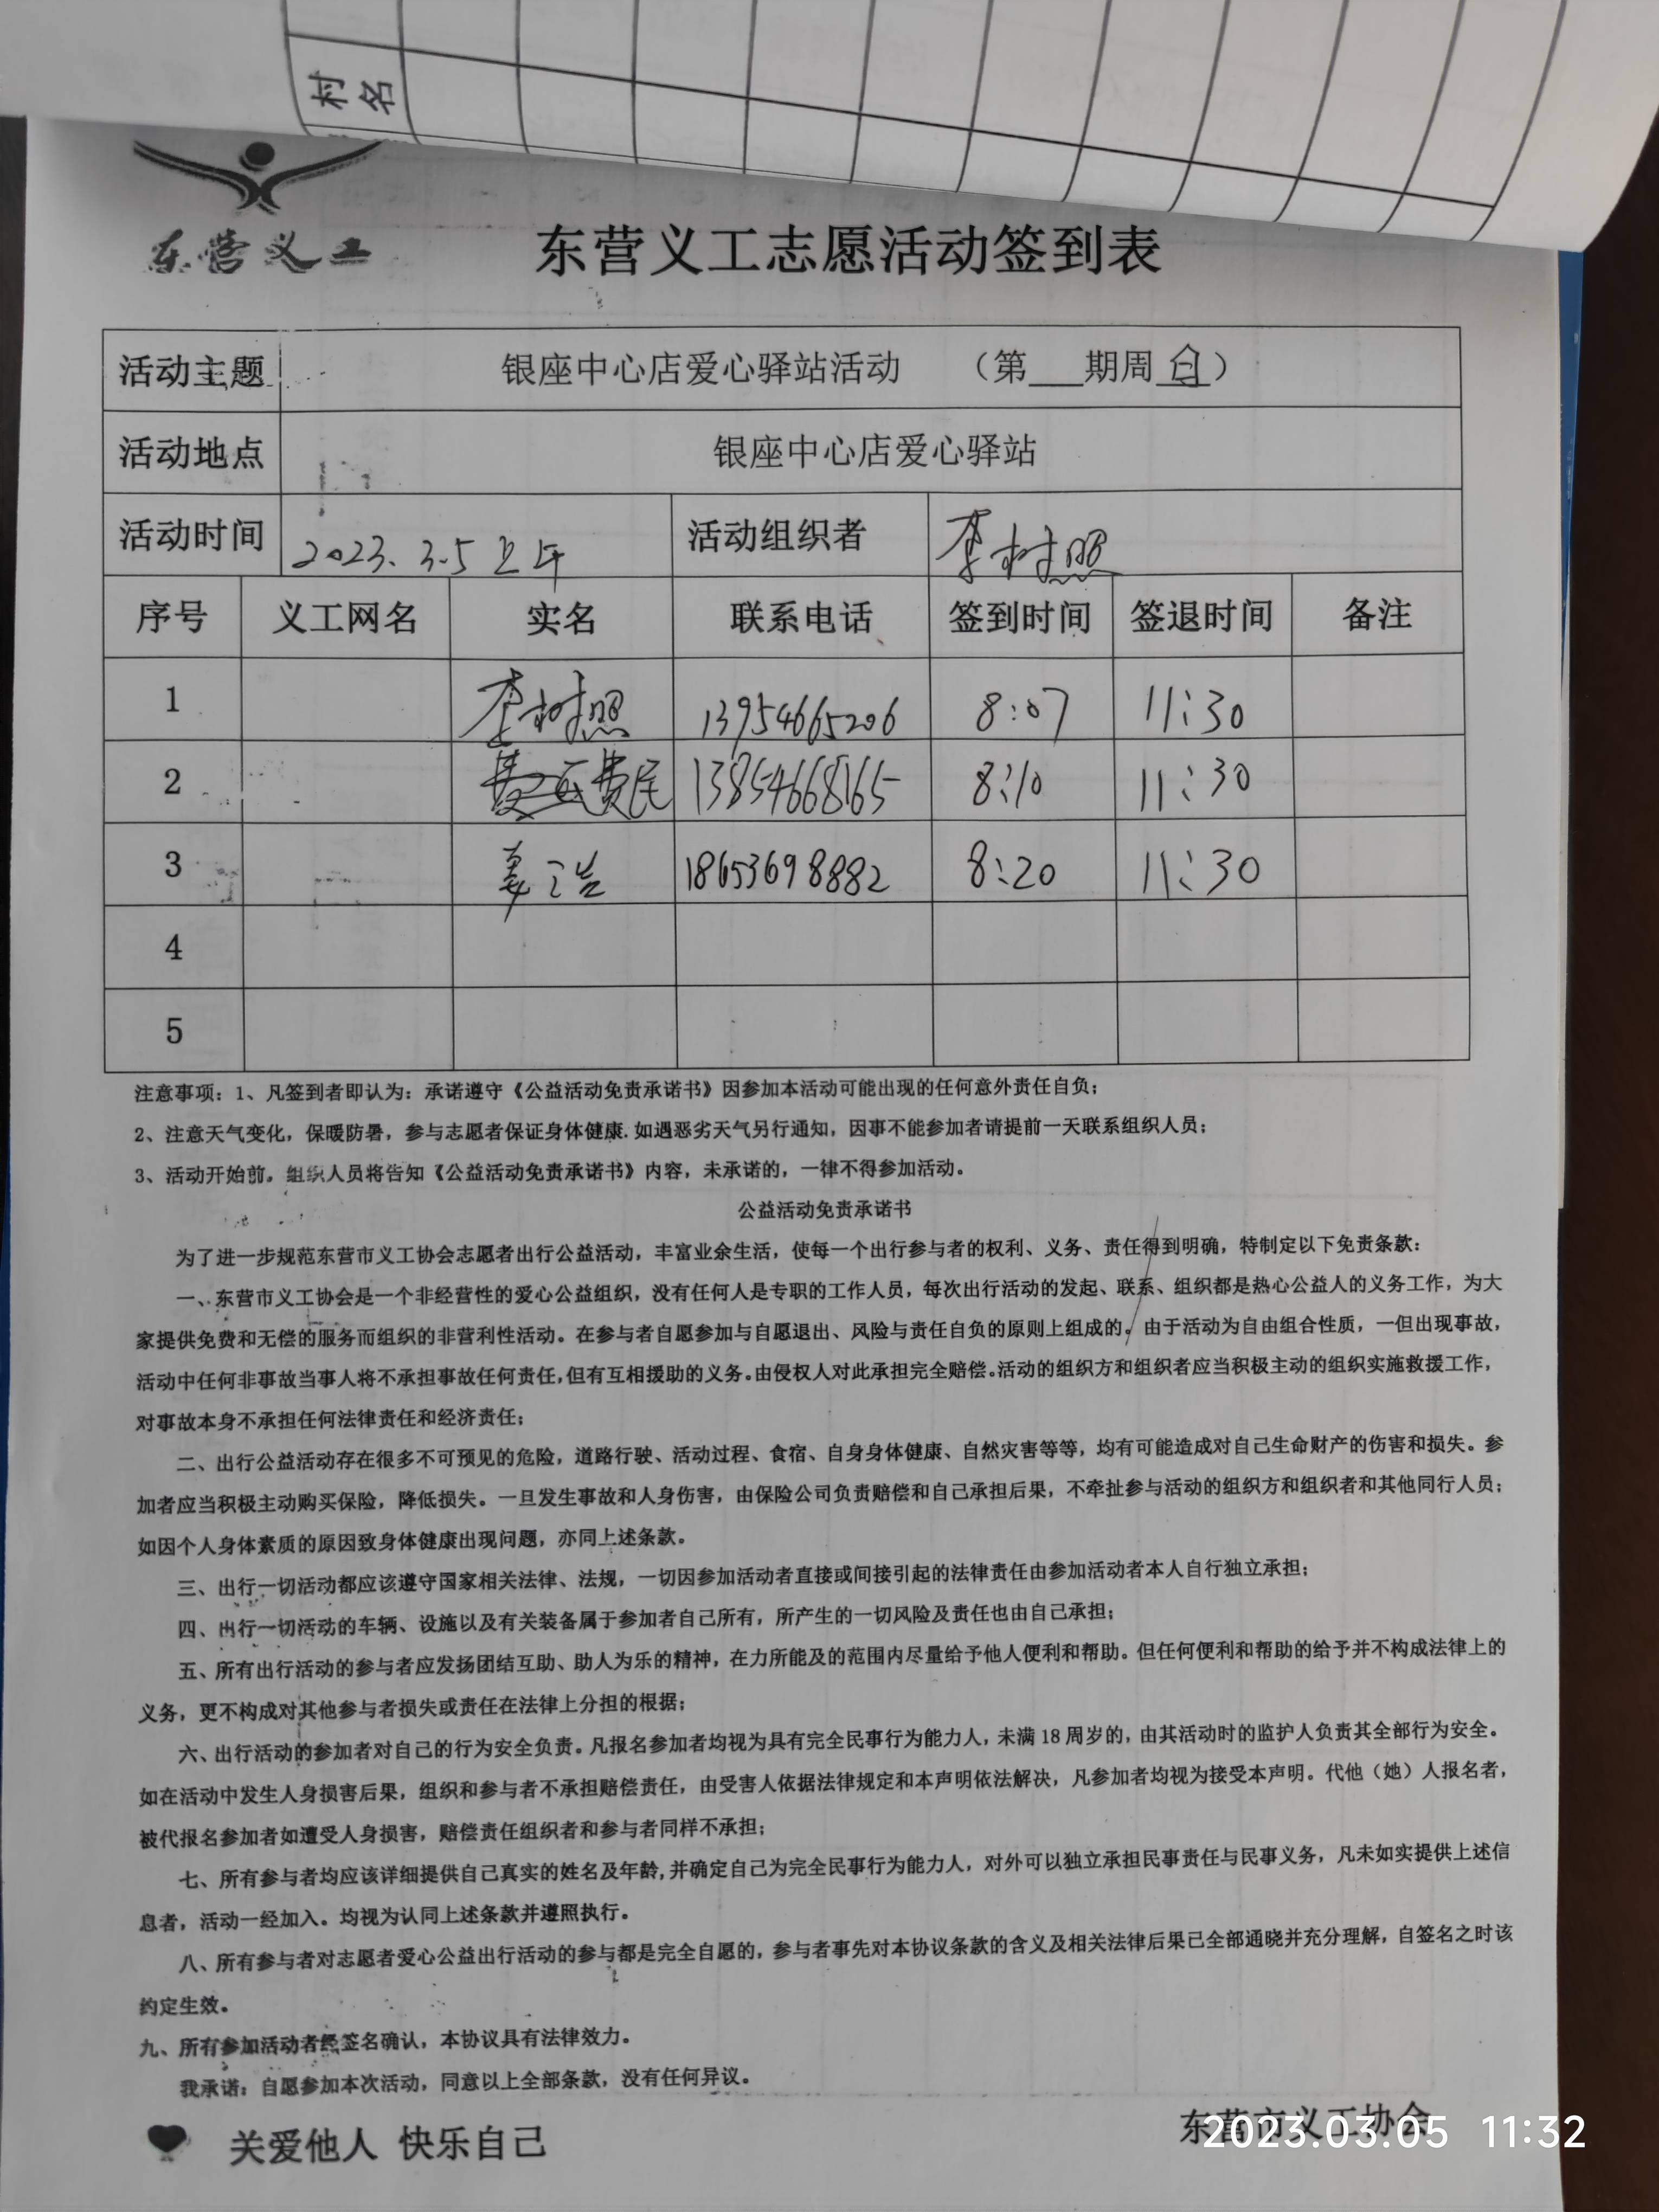 村名
东营义工
东营义工志愿活动签到表
活动主题 银座中心店爱心驿站活动 （第___期周日）
活动地点 银座中心店爱心驿站
活动时间 2023.3.5上午 活动组织者 李树照
序号 义工网名 实名 联系电话 签到时间 签退时间 备注
1 李树照 13954665206 8:07 11:30
2 费民 13854668165 8:10 11:30
3 18653698882 8:20 11:30
4
5
注意事项：1、凡签到者即认为：承诺遵守《公益活动免责承诺书》因参加本活动可能出现的任何意外责任自负；
2、注意天气变化，保暖防暑，参与志愿者保证身体健康.如遇恶劣天气另行通知，因事不能参加者请提前一天联系组织人员；
3、活动开始前，组织人员将告知《公益活动免责承诺书》内容，未承诺的，一律不得参加活动。
公益活动免责承诺书
为了进一步规范东营市义工协会志愿者出行公益活动，丰富业余生活，使每一个出行参与者的权利、义务、责任得到明确，特制定以下免责条款：
一、东营市义工协会是一个非经营性的爱心公益组织，没有任何人是专职的工作人员，每次出行活动的发起、联系、组织都是热心公益人的义务工作，为大
家提供免费和无偿的服务而组织的非营利性活动。在参与者自愿参加与自愿退出、风险与责任自负的原则上组成的。由于活动为自由组合性质，一但出现事故，
活动中任何非事故当事人将不承担事故任何责任，但有互相援助的义务。由侵权人对此承担完全赔偿。活动的组织方和组织者应当积极主动的组织实施救援工作，
对事故本身不承担任何法律责任和经济责任；
二、出行公益活动存在很多不可预见的危险，道路行驶、活动过程、食宿、自身身体健康、自然灾害等等，均有可能造成对自己生命财产的伤害和损失。参
加者应当积极主动购买保险，降低损失。一旦发生事故和人身伤害，由保险公司负责赔偿和自己承担后果，不牵扯参与活动的组织方和组织者和其他同行人员；
如因个人身体素质的原因致身体健康出现问题，亦同上述条款。
三、出行一切活动都应该遵守国家相关法律、法规，一切因参加活动者直接或间接引起的法律责任由参加活动者本人自行独立承担；
四、出行一切活动的车辆、设施以及有关装备属于参加者自己所有，所产生的一切风险及责任也由自己承担；
五、所有出行活动的参与者应发扬团结互助、助人为乐的精神，在力所能及的范围内尽量给予他人便利和帮助。但任何便利和帮助的给予并不构成法律上的
义务，更不构成对其他参与者损失或责任在法律上分担的根据；
六、出行活动的参加者对自己的行为安全负责。凡报名参加者均视为具有完全民事行为能力人，未满18周岁的，由其活动时的监护人负责其全部行为安全。
如在活动中发生人身损害后果，组织和参与者不承担赔偿责任，由受害人依据法律规定和本声明依法解决，凡参加者均视为接受本声明。代他（她）人报名者，
被代报名参加者如遭受人身损害，赔偿责任组织者和参与者同样不承担；
七、所有参与者均应该详细提供自己真实的姓名及年龄,并确定自己为完全民事行为能力人，对外可以独立承担民事责任与民事义务，凡未如实提供上述信
息者，活动一经加入。均视为认同上述条款并遵照执行。
八、所有参与者对志愿者爱心公益出行活动的参与都是完全自愿的，参与者事先对本协议条款的含义及相关法律后果已全部通晓并充分理解，自签名之时该
约定生效。
九、所有参加活动者经签名确认，本协议具有法律效力。
我承诺：自愿参加本次活动，同意以上全部条款，没有任何异议。
关爱他人 快乐自己
东营市义工协会
2023.03.05 11:32